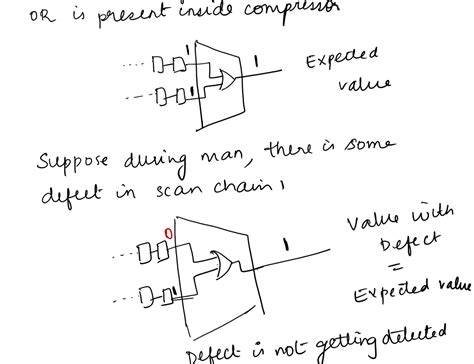 OR is present inside compressor
1
1
1
Expected
value
Suppose during man, there is some
defect in scan chain,
0
1
1
Value with
Defect
=
Expected value
Defect is not getting detected